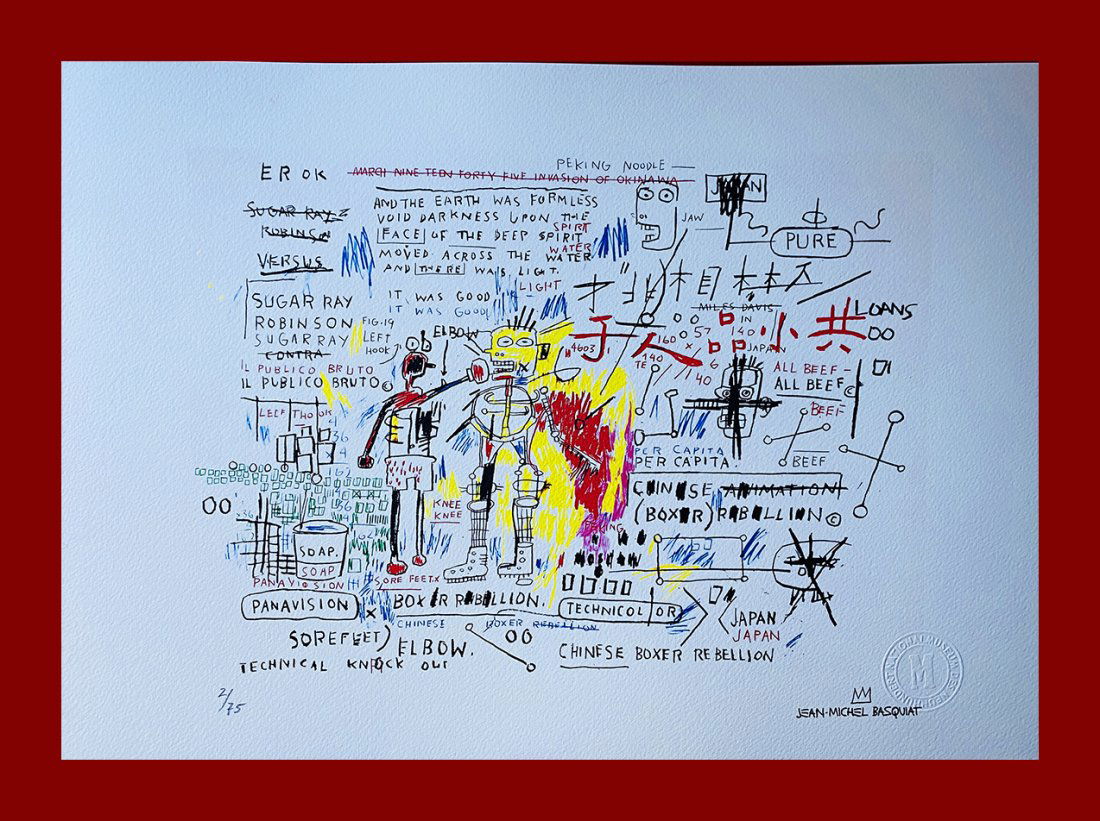 PEKING NOODLE
EROK
MARCH NINE TEEN FORTY FIVE INVASION OF OKINAWA
JAPAN
SUGAR RAY
ROBINSON
VERSUS
AND THE EARTH WAS FORMLESS
VOID DARKNESS UPON THE
SPIRIT
FACE OF THE DEEP SPIRIT
WATER
MOVED ACROSS THE WATER
AND THERE WAS LIGHT.
LIGHT
IT WAS GOOD
IT WAS GOOD
JAW
PURE
SUGAR RAY
ROBINSON
SUGAR RAY
CONTRA
IL PUBLICO BRUTO
IL PUBLICO BRUTO©
FIG.19
LEFT
HOOK
ELBOW
MILES DAVIS
IN
140
JAPAN
57
160
4603
140
TE
6
40
于人品小共
LOANS
OO
ALL BEEF-
ALL BEEF©
BEEF
BEEF
PER CAPITA
PER CAPITA.
CHINESE ANIMATION
(BOXER) REBELLION©
OO
KNEE
KNEE
SOAP.
SOAP
PANAVISION
SORE FEET X
PANAVISION
X
BOXER REBELLION.
TECHNICOLOR
CHINESE BOXER REBELLION
JAPAN
JAPAN
SOREFEET)
ELBOW.
OO
CHINESE BOXER REBELLION
TECHNICAL KNOCK OUT
2/75
JEAN-MICHEL BASQUIAT
M